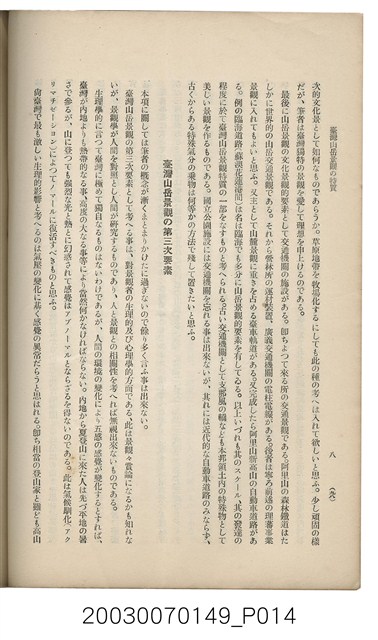 臺灣山岳景觀の特質
八
次的文化景として如何なものであらうか。草原地帶を牧場化するにしても此の種の考へは入れて欲しいと思ふ。少し頑固の樣
だが、筆者は臺灣獨特の景觀を愛して理想を申上げるのである。
最後に山岳景觀の文化景觀的要素として交通機關の施設がある。卽ちよつて來る所の交通景觀である。阿里山の森林鐵道はた
しかに世界的の山岳交通景觀である。それから營林所の運材裝置、廣義交通機關の電柱電線がある。後者は寧ろ前述の理蕃事業
景觀に入れてもよいと思ふ。又主として中腹景觀に重きを占める臺車軌道がある。又完成したら阿里山新高山の自動車道路があ
る。例の臨海道路（蘇澳花蓮港間）は名は臨海でも多分に山岳景觀的要素を有してゐる。以上いづれも其のスケール、其の發達の
程度に於て臺灣山岳景觀特質の一部をなすものと考へられる。古い交通機關として支那風の轎なども本邦領土内の特殊物として
美しい景觀を作るものである。國立公園施設には交通機關を忘れる事は出來ないが、其れには近代的な自動車道路のみならず、
古くからある特殊氣分の乘物は何等かの方法で殘して置きたいと思ふ。
臺灣山岳景觀の第三次要素
本項に關しては筆者の概念が漸くまとまりかけたに過ぎないので餘り多く言ふ事は出來ない。
臺灣山岳景觀の第三次要素として考へる事は、對景觀者の生理的及び心理學的方面である、此は景觀々賞論になるかも知れな
いが、景觀學が人間を對照として人間が研究するものであり、人と景觀との相關性を考へれば無視出來ないものである。
生理學的に言つて臺灣に極めて獨自なものはないわけであるが、人間の環境の變化により五感の感覺が變化するとすれば、
臺灣が内地よりも熱帶的なる事、高度の大なる事等により當然何かなければならない。内地から夏登山に來た人は先づ平地の暑
さで參るが、山に登つても强烈な光と熱とにおびされて感覺はアブノーマルとならざるを得ないのである。此は氣候馴化（アク
リマチゼーション）によつてノマールに復活すべきものと思ふ。
尙臺灣で最も激しい生理的影響と考へるのは氣壓の變化に基く感覺の異常だらうと思はれる。卽ち相當の登山家と雖ども高山
20030070149_P014